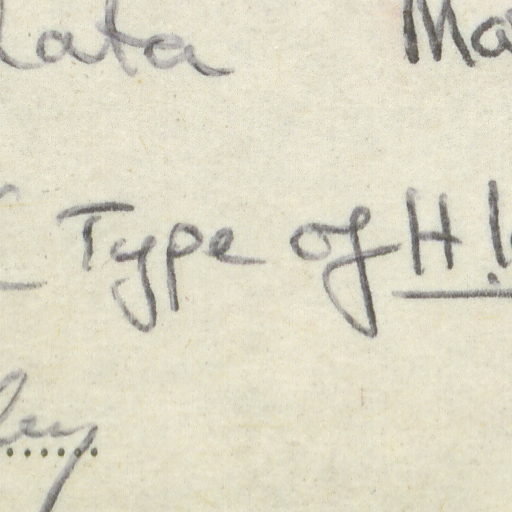 lata Ma
Type of H. l
ley